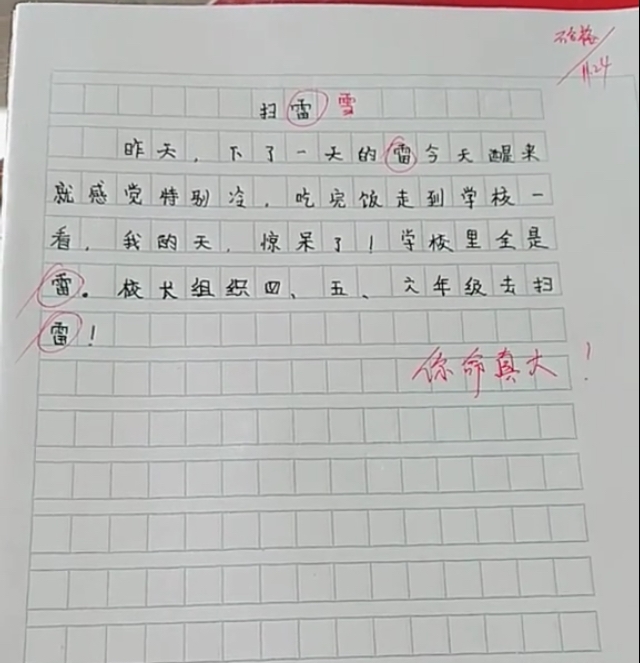 不合格
11.24
扫雷 雪
昨天，下了一天的雷今天醒来
就感觉特别冷，吃完饭走到学校一
看，我的天，惊呆了！学校里全是
雷。校长组织四、五、六年级去扫
雷！
你命真大！